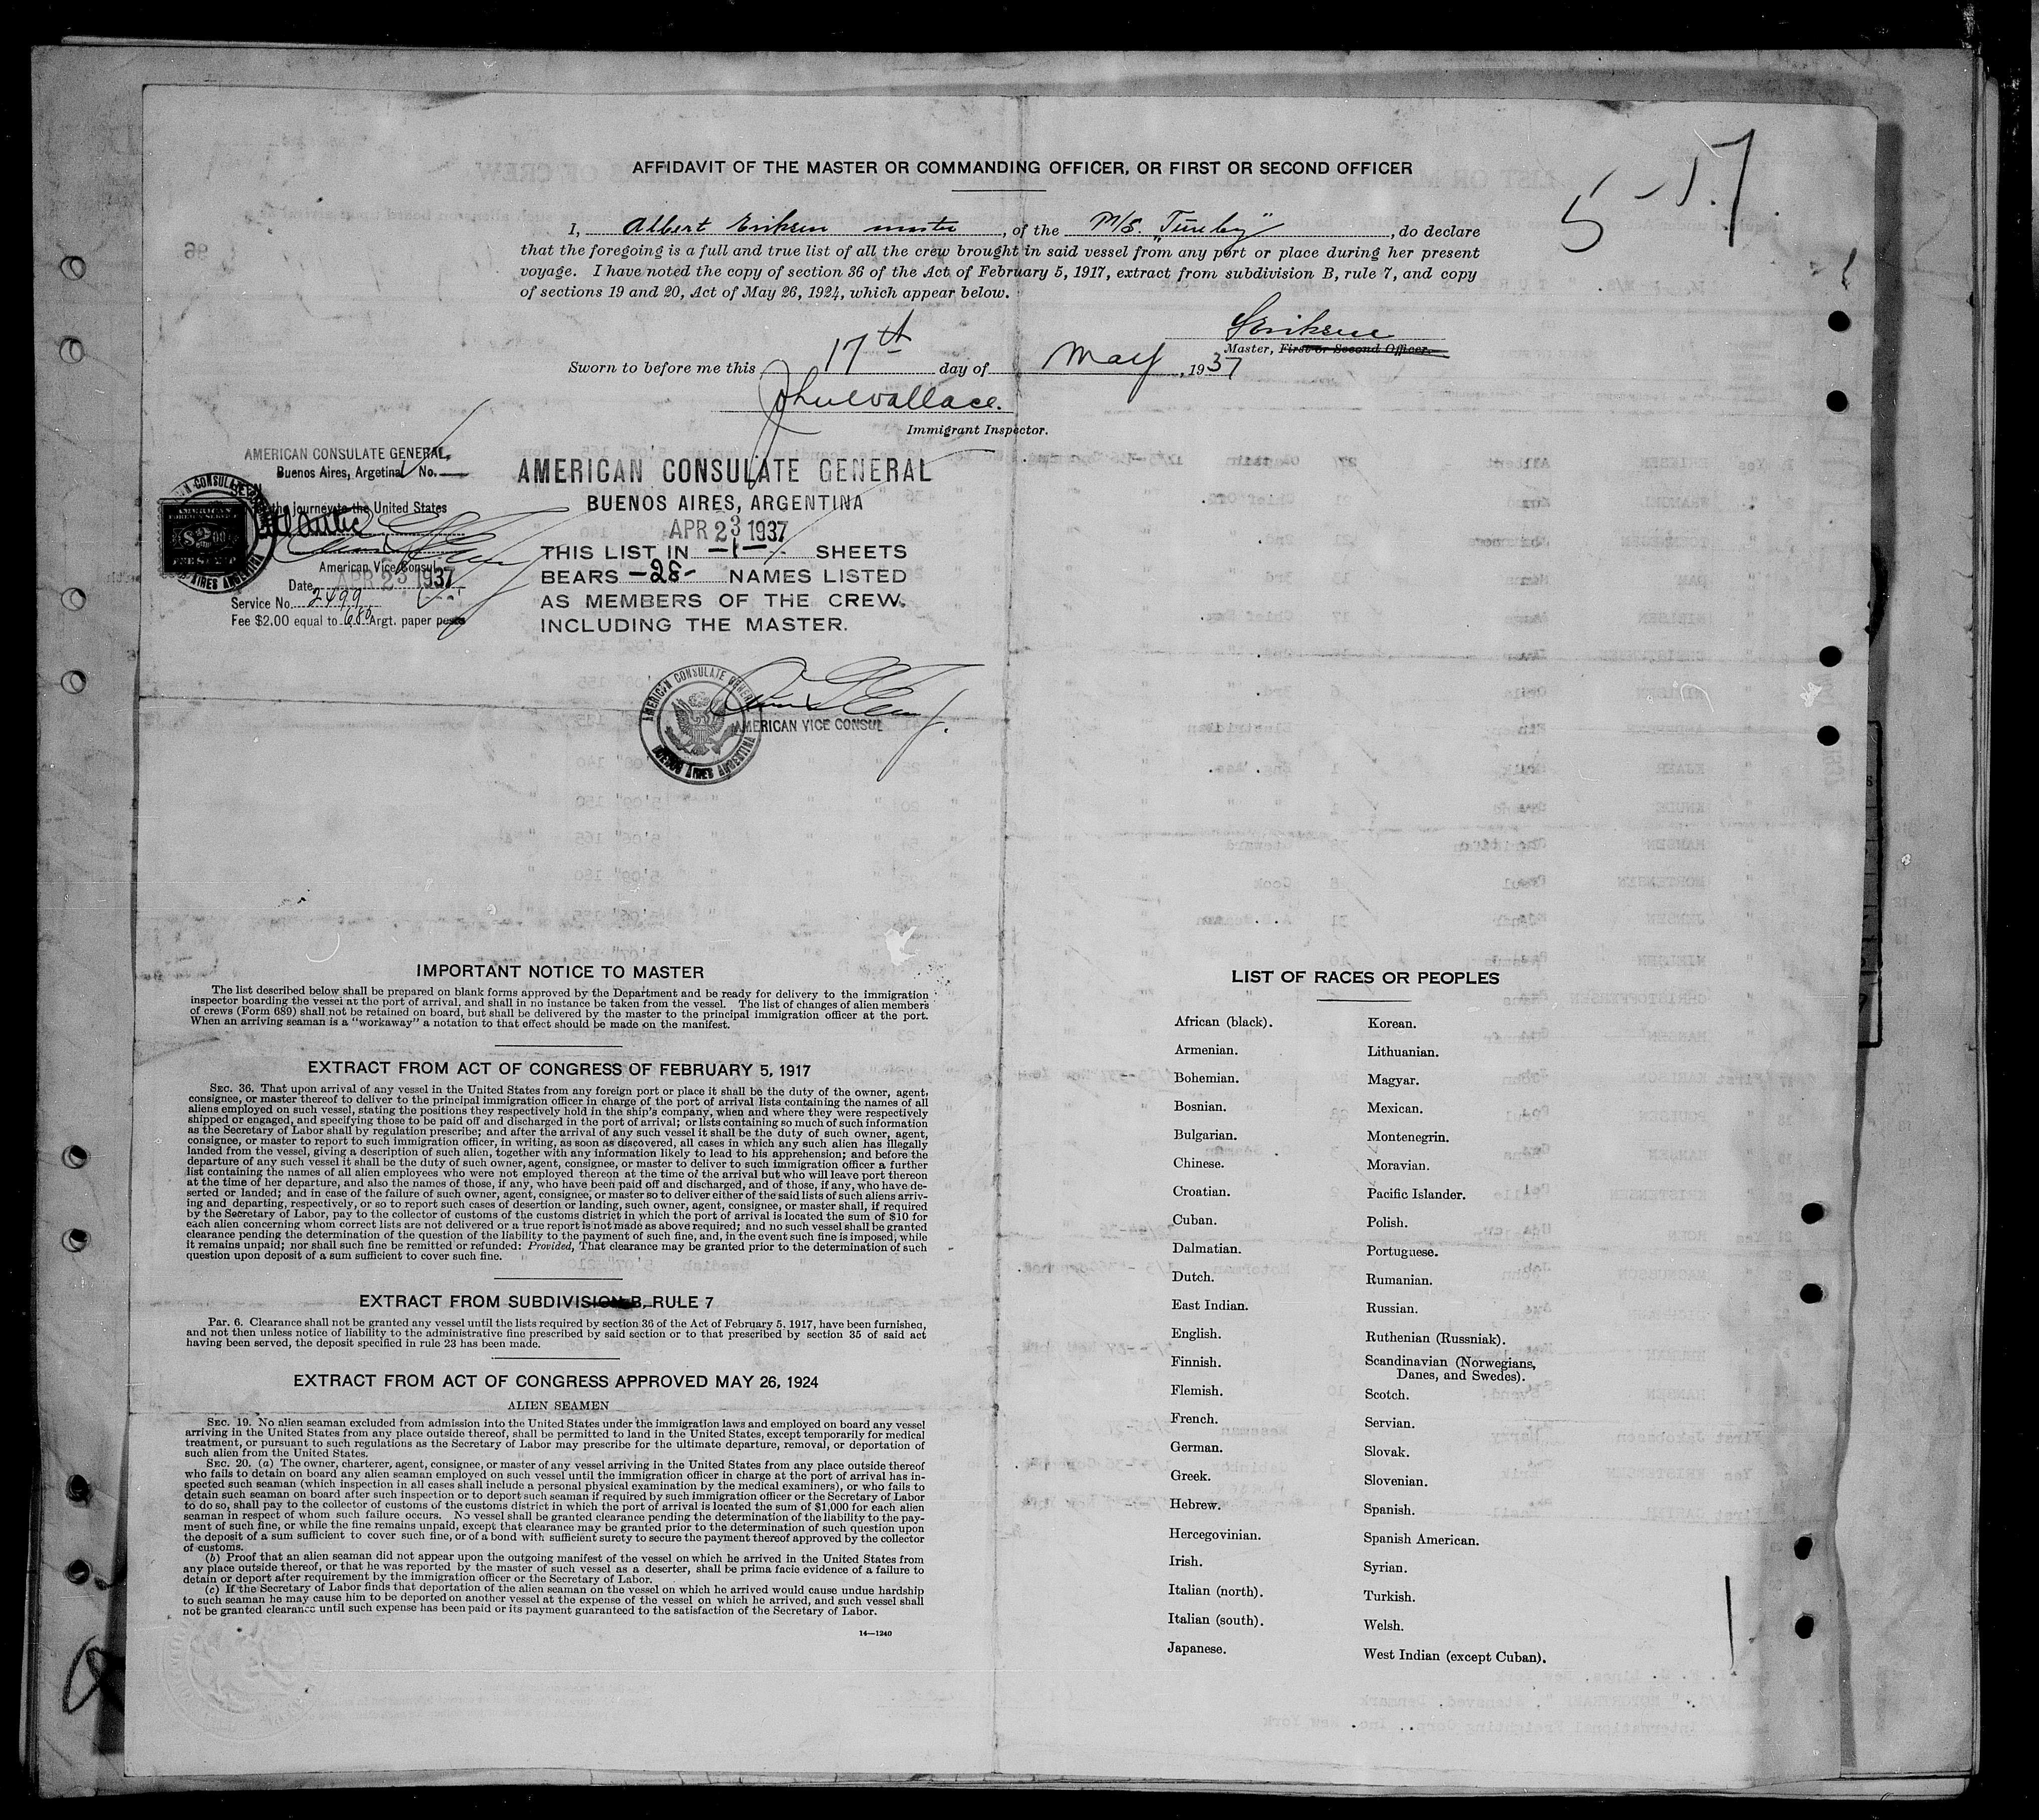 AFFIDAVIT OF THE MASTER OR COMMANDING OFFICER, OR FIRST OR SECOND OFFICER
5-17.
I, Albert Eriksen master, of the M/S. "Tureby", do declare
that the foregoing is a full and true list of all the crew brought in said vessel from any port or place during her present
voyage. I have noted the copy of section 36 of the Act of February 5, 1917, extract from subdivision B, rule 7, and copy
of sections 19 and 20, Act of May 26, 1924, which appear below.
Eriksen
Master, First or Second Officer.
Sworn to before me this 17th day of May, 1937
Wallace.
Immigrant Inspector.
AMERICAN CONSULATE GENERAL,
Buenos Aires, Argetina No.
SEEN
the journey to the United States
Atlantic
American Vice Consul
Date APR 23 1937
Service No. 2499
Fee $2.00 equal to 6.80 Argt. paper pesos
AMERICAN CONSULATE GENERAL
BUENOS AIRES, ARGENTINA
APR 23 1937
THIS LIST IN -1- SHEETS
BEARS -28- NAMES LISTED
AS MEMBERS OF THE CREW.
INCLUDING THE MASTER.
AMERICAN CONSULATE GENERAL
BUENOS AIRES ARGENTINA
AMERICAN VICE CONSUL
IMPORTANT NOTICE TO MASTER
The list described below shall be prepared on blank forms approved by the Department and be ready for delivery to the immigration
inspector boarding the vessel at the port of arrival, and shall in no instance be taken from the vessel. The list of changes of alien members
of crews (Form 689) shall not be retained on board, but shall be delivered by the master to the principal immigration officer at the port.
When an arriving seaman is a "workaway" a notation to that effect should be made on the manifest.
EXTRACT FROM ACT OF CONGRESS OF FEBRUARY 5, 1917
SEC. 36. That upon arrival of any vessel in the United States from any foreign port or place it shall be the duty of the owner, agent,
consignee, or master thereof to deliver to the principal immigration officer in charge of the port of arrival lists containing the names of all
aliens employed on such vessel, stating the positions they respectively hold in the ship's company, when and where they were respectively
shipped or engaged, and specifying those to be paid off and discharged in the port of arrival; or lists containing so much of such information
as the Secretary of Labor shall by regulation prescribe; and after the arrival of any such vessel it shall be the duty of such owner, agent,
consignee, or master to report to such immigration officer, in writing, as soon as discovered, all cases in which any such alien has illegally
landed from the vessel, giving a description of such alien, together with any information likely to lead to his apprehension; and before the
departure of any such vessel it shall be the duty of such owner, agent, consignee, or master to deliver to such immigration officer a further
list containing the names of all alien employees who were not employed thereon at the time of the arrival but who will leave port thereon
at the time of her departure, and also the names of those, if any, who have been paid off and discharged, and of those, if any, who have de-
serted or landed; and in case of the failure of such owner, agent, consignee, or master so to deliver either of the said lists of such aliens arriv-
ing and departing, respectively, or so to report such cases of desertion or landing, such owner, agent, consignee, or master shall, if required
by the Secretary of Labor, pay to the collector of customs of the customs district in which the port of arrival is located the sum of $10 for
each alien concerning whom correct lists are not delivered or a true report is not made as above required; and no such vessel shall be granted
clearance pending the determination of the question of the liability to the payment of such fine, and, in the event such fine is imposed, while
it remains unpaid; nor shall such fine be remitted or refunded: Provided, That clearance may be granted prior to the determination of such
question upon deposit of a sum sufficient to cover such fine.
EXTRACT FROM SUBDIVISION B, RULE 7
Par. 6. Clearance shall not be granted any vessel until the lists required by section 36 of the Act of February 5, 1917, have been furnished,
and not then unless notice of liability to the administrative fine prescribed by said section or to that prescribed by section 35 of said act
having been served, the deposit specified in rule 23 has been made.
EXTRACT FROM ACT OF CONGRESS APPROVED MAY 26, 1924
ALIEN SEAMEN
SEC. 19. No alien seaman excluded from admission into the United States under the immigration laws and employed on board any vessel
arriving in the United States from any place outside thereof, shall be permitted to land in the United States, except temporarily for medical
treatment, or pursuant to such regulations as the Secretary of Labor may prescribe for the ultimate departure, removal, or deportation of
such alien from the United States.
SEC. 20. (a) The owner, charterer, agent, consignee, or master of any vessel arriving in the United States from any place outside thereof
who fails to detain on board any alien seaman employed on such vessel until the immigration officer in charge at the port of arrival has in-
spected such seaman (which inspection in all cases shall include a personal physical examination by the medical examiners), or who fails to
detain such seaman on board after such inspection or to deport such seaman if required by such immigration officer or the Secretary of Labor
to do so, shall pay to the collector of customs of the customs district in which the port of arrival is located the sum of $1,000 for each alien
seaman in respect of whom such failure occurs. No vessel shall be granted clearance pending the determination of the liability to the pay-
ment of such fine, or while the fine remains unpaid, except that clearance may be granted prior to the determination of such question upon
the deposit of a sum sufficient to cover such fine, or of a bond with sufficient surety to secure the payment thereof approved by the collector
of customs.
(b) Proof that an alien seaman did not appear upon the outgoing manifest of the vessel on which he arrived in the United States from
any place outside thereof, or that he was reported by the master of such vessel as a deserter, shall be prima facie evidence of a failure to
detain or deport after requirement by the immigration officer or the Secretary of Labor.
(c) If the Secretary of Labor finds that deportation of the alien seaman on the vessel on which he arrived would cause undue hardship
to such seaman he may cause him to be deported on another vessel at the expense of the vessel on which he arrived, and such vessel shall
not be granted clearance until such expense has been paid or its payment guaranteed to the satisfaction of the Secretary of Labor.
14—1240
LIST OF RACES OR PEOPLES
African (black).
Armenian.
Bohemian.
Bosnian.
Bulgarian.
Chinese.
Croatian.
Cuban.
Dalmatian.
Dutch.
East Indian.
English.
Finnish.
Flemish.
French.
German.
Greek.
Hebrew.
Hercegovinian.
Irish.
Italian (north).
Italian (south).
Japanese.
Korean.
Lithuanian.
Magyar.
Mexican.
Montenegrin.
Moravian.
Pacific Islander.
Polish.
Portuguese.
Rumanian.
Russian.
Ruthenian (Russniak).
Scandinavian (Norwegians,
Danes, and Swedes).
Scotch.
Servian.
Slovak.
Slovenian.
Spanish.
Spanish American.
Syrian.
Turkish.
Welsh.
West Indian (except Cuban).